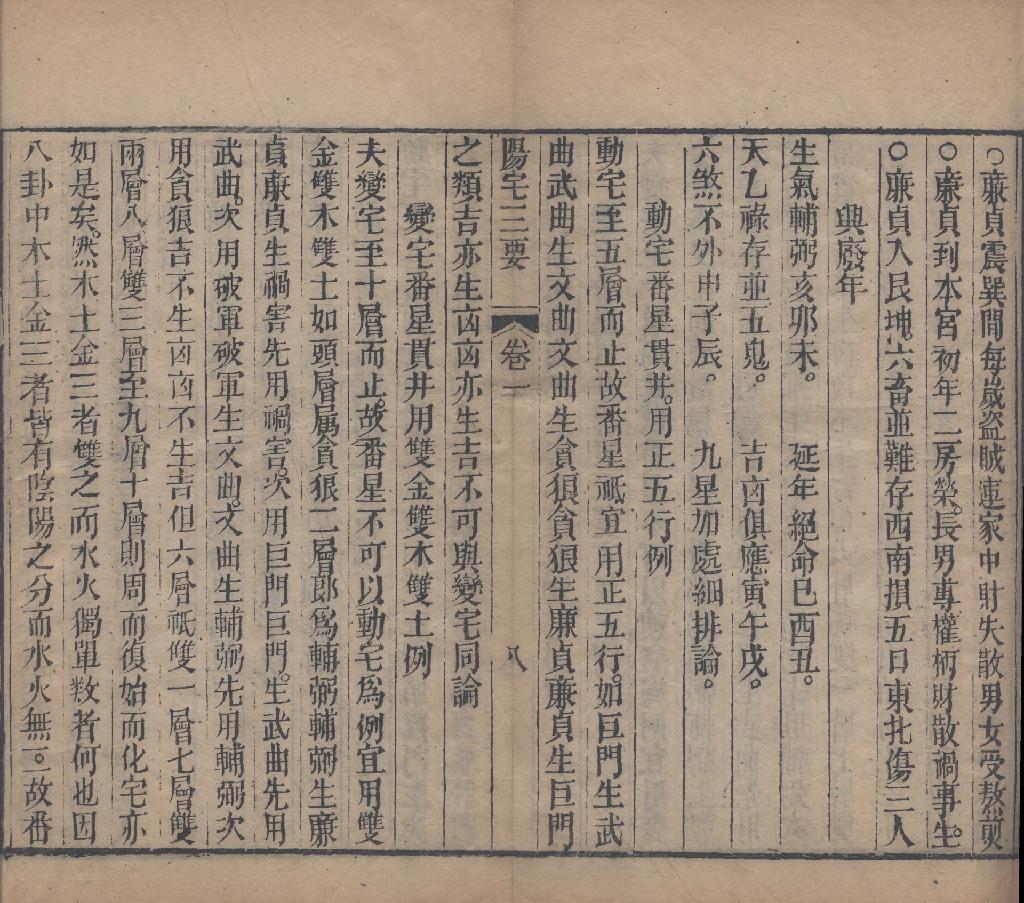 ○廉貞震巽間每歲盜賊連家中財失散男女受熬煎
○廉貞到本宮初年二房榮。長男專權柄財散禍事生。
○廉貞入艮坤六畜並難存西南損五日東北傷三人
興廢年
生氣輔弼亥卯未。　延年絕命巳酉丑。
天乙祿存並五鬼。　吉凶俱應寅午戌。
六煞不外申子辰。　九星加處細排論。
動宅番星貫井。用正五行例
動宅至五層而止故番星祇宜用正五行。如巨門生武
曲武曲生文曲文曲生貪狼貪狼生廉貞廉貞生巨門
陽宅三要　卷一　八
之類吉亦生凶凶亦生吉不可與變宅同論
變宅番星貫井用雙金雙木雙土例
夫變宅至十層而止。故番星不可以動宅爲例宜用雙
金雙木雙土如頭層属貪狼二層郎爲輔弼輔弼生廉
貞廉貞生禍害先用禍害。次用巨門巨門。生武曲先用
武曲。次用破軍破軍生文曲。文曲生輔弼先用輔弼次
用貪狼吉不生凶凶不生吉但六層祇雙一層七層雙
兩層八層雙三層至九層十層則周而復始而化宅亦
如是矣。然木土金三者雙之而水火獨單数者何也因
八卦中木土金三者皆有陰陽之分而水火無二。故番